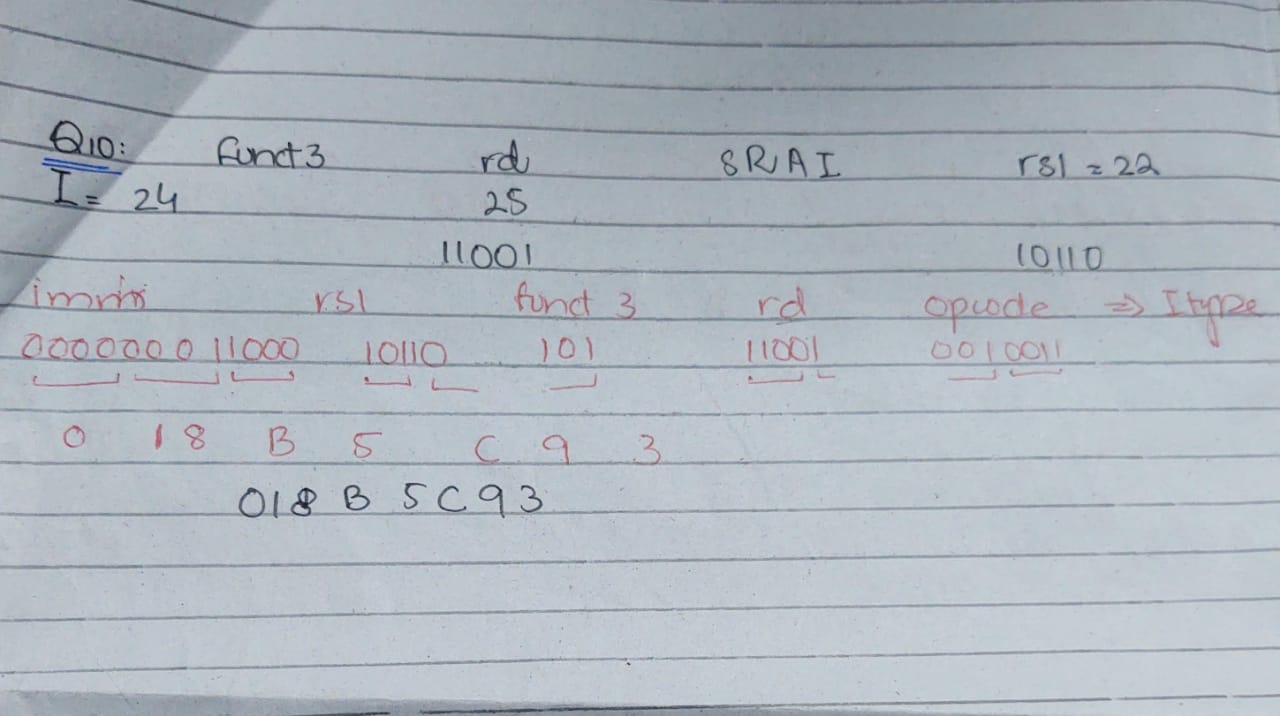 Q10: funct3 rd SRAI rs1 = 22
I = 24 25
11001 10110
imm rs1 funct 3 rd opcode ⇒ I type
000000011000 10110 101 11001 0010011
0 1 8 B 5 C 9 3
018 B 5C93